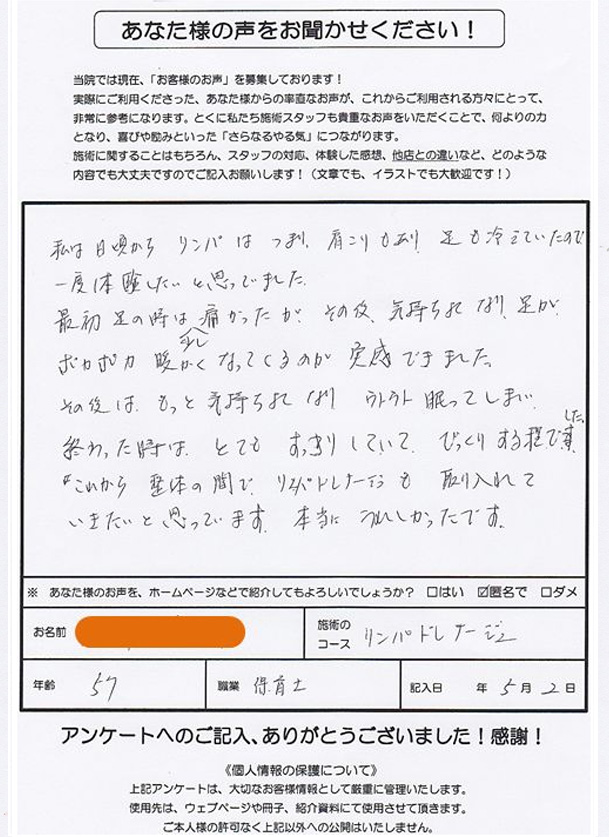 あなた様の声をお聞かせください！
当院では現在、「お客様のお声」を募集しております！
実際にご利用くださった、あなた様からの率直なお声が、これからご利用される方々にとって、
非常に参考になります。とくに私たち施術スタッフも貴重なお声をいただくことで、何よりの力
となり、喜びや励みといった「さらなるやる気」につながります。
施術に関することはもちろん、スタッフの対応、体験した感想、他店との違いなど、どのような
内容でも大丈夫ですのでご記入お願いします！（文章でも、イラストでも大歓迎です！）
私は日頃から リンパは つまり、肩こりもあり 足も冷えていたので
一度体験したいと思ってました。
最初 足の時は 少し 痛かったが、その後、気持ちよくなり、足が
ポカポカ 暖かくなってくるのが 実感できました。
その後は、もっと 気持ちよくなり ウトウト 眠ってしまい、
終わった時は、とても すっきりしていて、びっくりする程でした。
これから 整体の間で、リンパドレナージュも 取り入れて
いきたいと思っています。本当に うれしかったです。
※ あなた様のお声を、ホームページなどで紹介してもよろしいでしょうか？ □はい ☑匿名で □ダメ
お名前 施術のコース リンパドレナージュ
年齢 57 職業 保育士 記入日 年 5月 2日
アンケートへのご記入、ありがとうございました！感謝！
《個人情報の保護について》
上記アンケートは、大切なお客様情報として厳重に管理いたします。
使用先は、ウェブページや冊子、紹介資料にて使用させて頂きます。
ご本人様の許可なく上記以外への公開はいたしません。